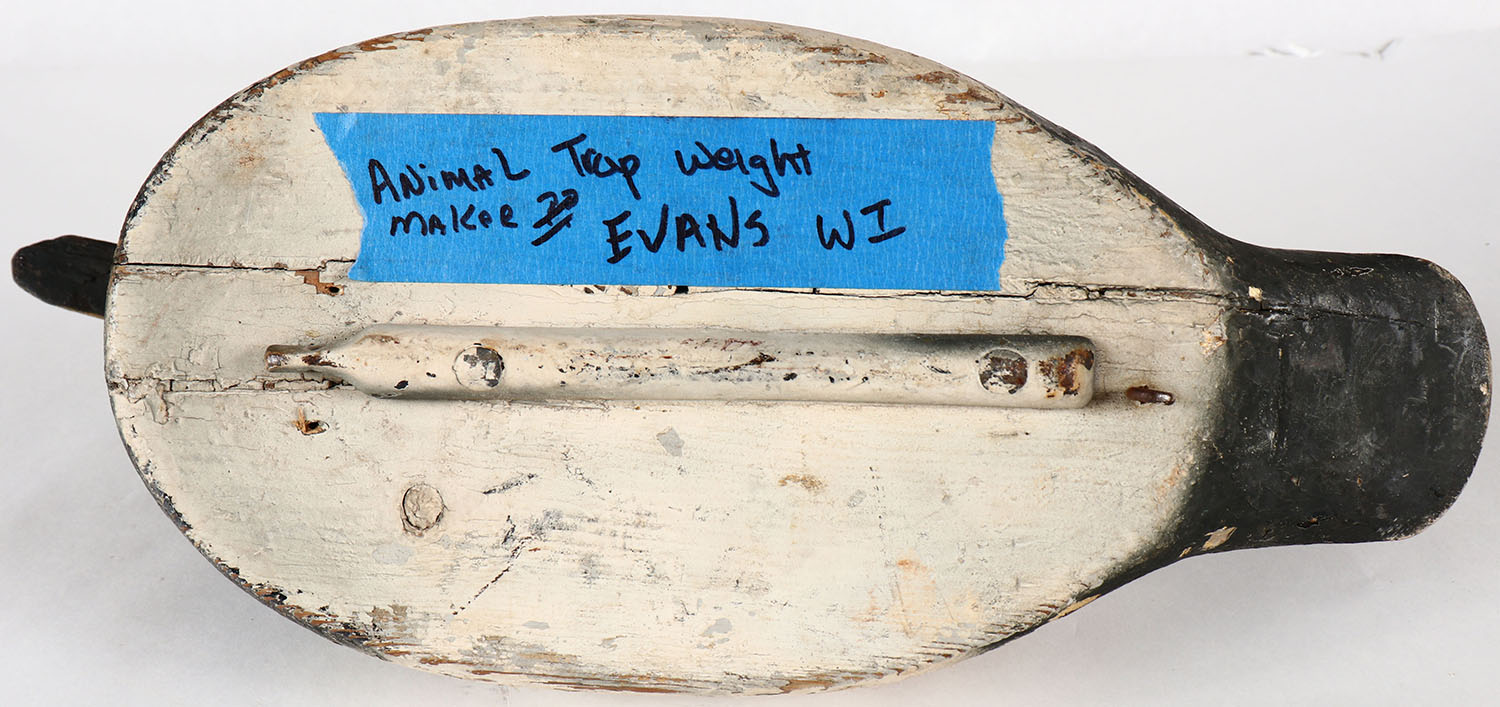 ANiMAL Trap Weight
MAKER ?? EVANS WI